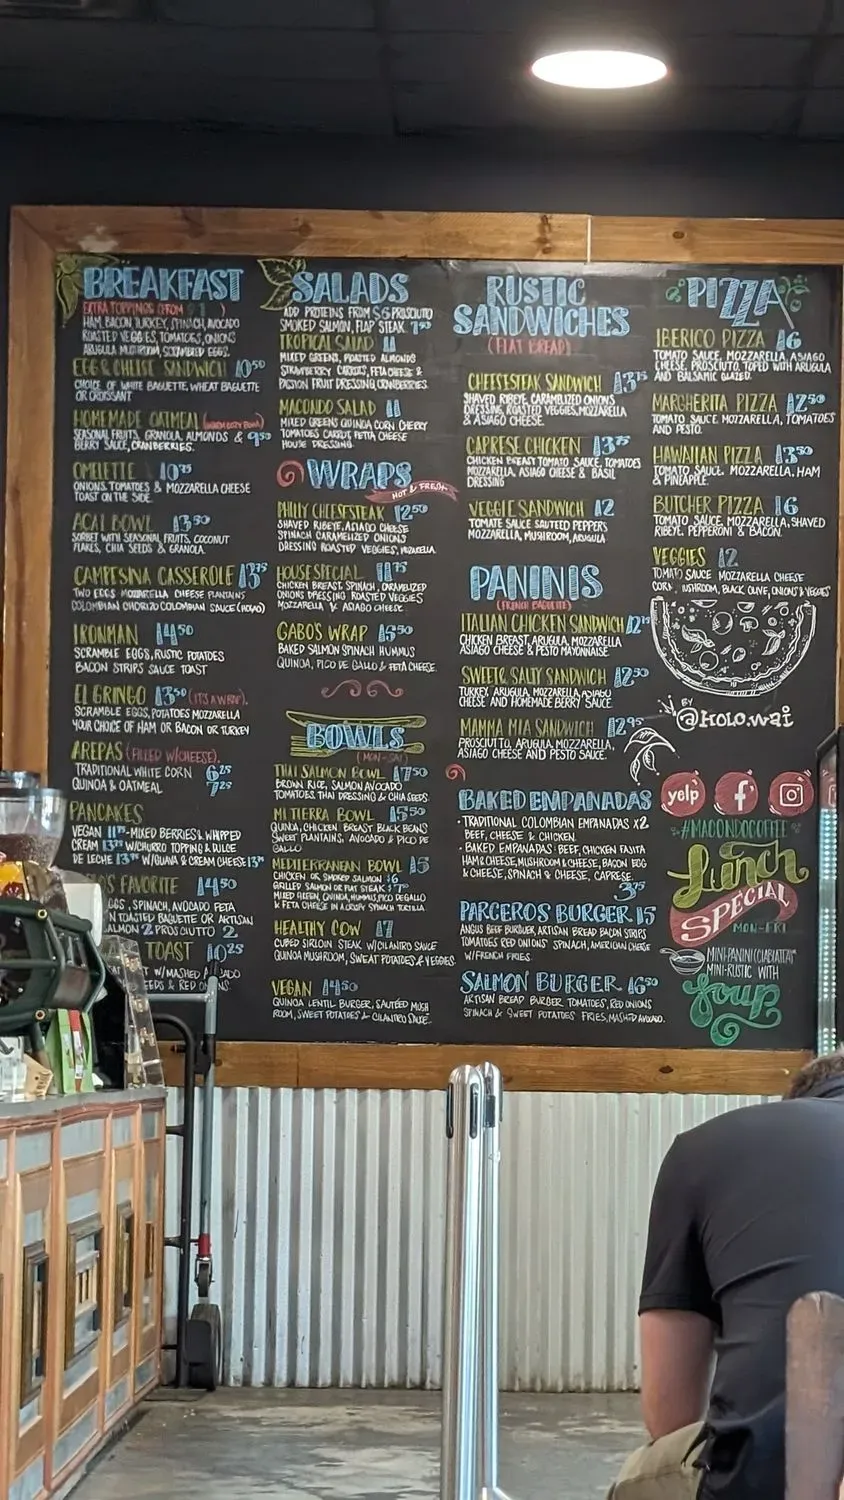 BREAKFAST
EXTRA TOPPINGS (FROM $1 )
HAM, BACON TURKEY, SPINACH, AVOCADO
ROASTED VEGGIES, TOMATOES, ONIONS
ARUGULA MUSHROOM, SCRAMBLED EGGS.
EGG & CHEESE SANDWICH 10.50
CHOICE OF WHITE BAGUETTE, WHEAT BAGUETTE
OR CROISSANT
HOMEMADE OATMEAL (WARM COZY BOWL)
SEASONAL FRUITS, GRANOLA, ALMONDS & 9.50
BERRY SAUCE, CRANBERRIES.
OMELETTE 10.75
ONIONS, TOMATOES & MOZZARELLA CHEESE
TOAST ON THE SIDE
ACAI BOWL 13.50
SORBET WITH SEASONAL FRUITS, COCONUT
FLAKES, CHIA SEEDS & GRANOLA
CAMPESINA CASSEROLE 13.75
TWO EGGS MOZZARELLA CHEESE PLANTAINS
COLOMBIAN CHORIZO COLOMBIAN SAUCE (HOGAO)
IRONMAN 14.50
SCRAMBLE EGGS, RUSTIC POTATOES
BACON STRIPS SAUCE TOAST
EL GRINGO 13.50 (IT'S A WRAP).
SCRAMBLE EGGS, POTATOES MOZZARELLA
YOUR CHOICE OF HAM OR BACON OR TURKEY
AREPAS (FILLED W/CHEESE).
TRADITIONAL WHITE CORN 6.25
QUINOA & OATMEAL 7.25
PANCAKES
VEGAN 11.75 - MIXED BERRIES & WHIPPED
CREAM 13.75 W/CHURRO TOPPING & DULCE
DE LECHE 13.75 W/GUAVA & CREAM CHEESE 13.75
FAVORITE 14.50
, SPINACH, AVOCADO FETA
N TOASTED BAGUETTE OR ARTISAN
SALMON 2 PROSCIUTTO 2
TOAST 10.25
W/MASHED AVOCADO
SEEDS & RED ONIONS
SALADS
ADD PROTEINS FROM $6 PROSCIUTO
SMOKED SALMON, FLAP STEAK 7.50
TROPICAL SALAD 11
MIXED GREENS, ROASTED ALMONDS
STRAWBERRY CARROTS, FETA CHEESE &
PASSION FRUIT DRESSING, CRANBERRIES.
MACONDO SALAD 11
MIXED GREENS QUINOA CORN CHERRY
TOMATOES CARROT, FETTA CHEESE
HOUSE DRESSING.
WRAPS
HOT & FRESH
PHILLY CHEESESTEAK 12.50
SHAVED RIBEYE, ASIAGO CHEESE
SPINACH CARAMELIZED ONIONS
DRESSING ROASTED VEGGIES, MOZARELLA.
HOUSE SPECIAL 11.75
CHICKEN BREAST, SPINACH, CARAMELIZED
ONIONS DRESSING ROASTED VEGGIES
MOZZARELLA & ASIAGO CHEESE.
GABO'S WRAP 16.50
BAKED SALMON SPINACH HUMMUS
QUINOA, PICO DE GALLO & FETA CHEESE.
BOWLS
(MON-SAT)
THAI SALMON BOWL 17.50
BROWN RICE, SALMON AVOCADO
TOMATOES, THAI DRESSING & CHIA SEEDS.
MI TIERRA BOWL 15.50
QUINOA, CHICKEN BREAST BLACK BEANS
SWEET PLANTAINS, AVOCADO & PICO DE
GALLO
MEDITERRANEAN BOWL 15
CHICKEN OR SMOKED SALMON $6
GRILLED SALMON OR FLAT STEAK $7.50
MIXED GREEN, QUINOA, HUMMUS, PICO DEGALLO
& FETA CHEESE IN A CRISPY SPINACH TORTILLA.
HEALTHY COW 17
CUBED SIRLOIN STEAK W/CILANTRO SAUCE
QUINOA MUSHROOM, SWEAT POTATOES & VEGGIES
VEGAN 14.50
QUINOA LENTIL BURGER, SAUTEED MUSH
ROOM, SWEET POTATOES & CILANTRO SAUCE.
RUSTIC
SANDWICHES
(FLAT BREAD)
CHEESESTEAK SANDWICH 13.75
SHAVED RIBEYE, CARAMELIZED ONIONS
DRESSING, ROASTED VEGGIES, MOZZARELLA
& ASIAGO CHEESE.
CAPRESE CHICKEN 13.75
CHICKEN BREAST TOMATO SAUCE, TOMATOES
MOZZARELLA, ASIAGO CHEESE & BASIL
DRESSING
VEGGIE SANDWICH 12
TOMATE SAUCE SAUTEED PEPPERS
MOZZARELLA, MUSHROOM, ARUGULA
PANINIS
(FRENCH BAGUETTE)
ITALIAN CHICKEN SANDWICH 12.75
CHICKEN BREAST, ARUGULA, MOZZARELLA
ASIAGO CHEESE & PESTO MAYONNAISE.
SWEET & SALTY SANDWICH 12.50
TURKEY, ARUGULA, MOZZARELLA, ASIAGO
CHEESE AND HOMEMADE BERRY SAUCE
MAMMA MIA SANDWICH 12.95
PROSCIUTTO, ARUGULA, MOZZARELLA,
ASIAGO CHEESE AND PESTO SAUCE.
BAKED EMPANADAS
• TRADITIONAL COLOMBIAN EMPANADAS X2
BEEF, CHEESE & CHICKEN.
• BAKED EMPANADAS: BEEF, CHICKEN FAJITA
HAM & CHEESE, MUSHROOM & CHEESE, BACON EGG
& CHEESE, SPINACH & CHEESE, CAPRESE.
3.75
PARCEROS BURGER 15
ANGUS BEEF BURGUER, ARTISAN BREAD BACON STRIPS
TOMATOES RED ONIONS SPINACH, AMERICAN CHEESE
W/FRENCH FRIES.
SALMON BURGER 16.50
ARTISAN BREAD BURGER TOMATOES, RED ONIONS
SPINACH & SWEET POTATOES FRIES, MASHED AVOCADO.
PIZZA
IBERICO PIZZA 16
TOMATO SAUCE, MOZZARELLA, ASIAGO
CHEESE, PROSCIUTO, TOPED WITH ARUGULA
AND BALSAMIC GLAZED.
MARGHERITA PIZZA 12.50
TOMATO SAUCE MOZZARELLA, TOMATOES
AND PESTO.
HAWAIIAN PIZZA 13.50
TOMATO SAUCE, MOZZARELLA, HAM
& PINEAPPLE.
BUTCHER PIZZA 16
TOMATO SAUCE, MOZZARELLA, SHAVED
RIBEYE, PEPPERONI & BACON.
VEGGIES 12
TOMATO SAUCE MOZZARELLA CHEESE
CORN, MUSHROOM, BLACK OLIVE, ONIONS & VEGGIES
BY
@KOLO.WAI
yelp
#MACONDOCOFFEE
Lunch
SPECIAL
MON-FRI
MINI-PANINI (CIABATTA)
MINI-RUSTIC WITH
Soup